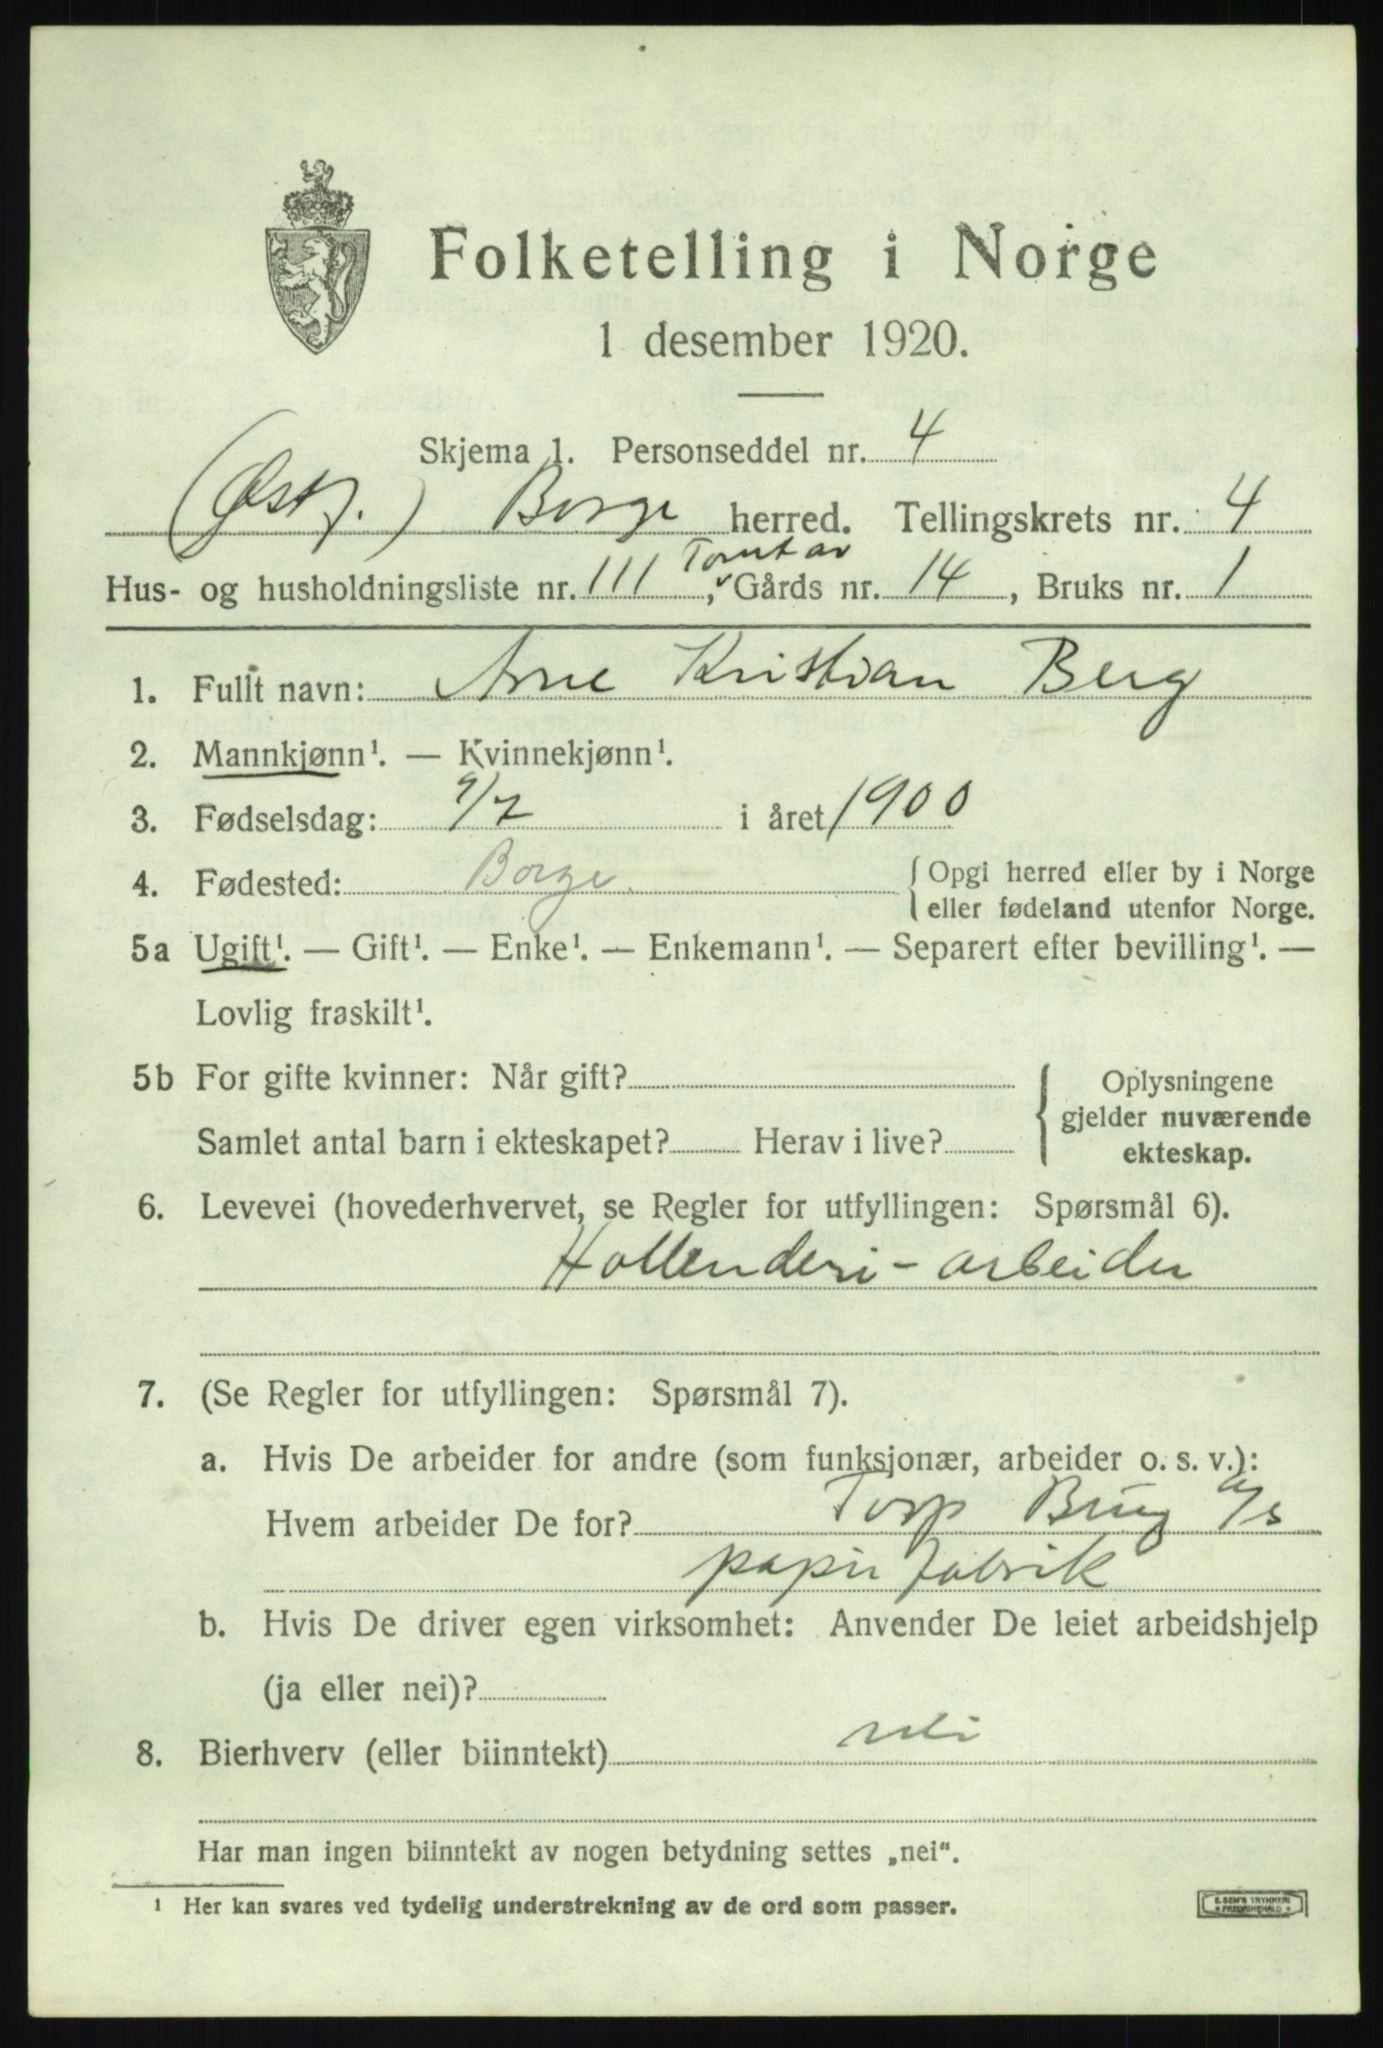 Folketelling i Norge
1 desember 1920.
Skjema 1. Personseddel nr. 4
(Østf.) Borge herred. Tellingskrets nr. 4
Tomt av
Hus- og husholdningsliste nr. 111, Gårds nr. 14, Bruks nr. 1
1. Fullt navn: Arne Kristian Berg
2. Mannkjønn¹. — Kvinnekjønn¹.
3. Fødselsdag: 9/7 i året 1900
4. Fødested: Borge. { Opgi herred eller by i Norge
eller fødeland utenfor Norge.
5a Ugift¹. — Gift¹. — Enke¹. — Enkemann¹. — Separert efter bevilling¹. —
Lovlig fraskilt¹.
5b For gifte kvinner: Når gift? { Oplysningene
gjelder nuværende
Samlet antal barn i ekteskapet? Herav i live? ekteskap.
6. Levevei (hovederhvervet, se Regler for utfyllingen: Spørsmål 6).
Hollenderi-arbeider
7. (Se Regler for utfyllingen: Spørsmål 7).
a. Hvis De arbeider for andre (som funksjonær, arbeider o. s. v.):
Hvem arbeider De for? Torp Brug a/s
papirfabrik
b. Hvis De driver egen virksomhet: Anvender De leiet arbeidshjelp
(ja eller nei)?
8. Bierhverv (eller biinntekt) nei
Har man ingen biinntekt av nogen betydning settes „nei“.
¹ Her kan svares ved tydelig understrekning av de ord som passer.
E. SEM'S TRYKKERI
FREDRIKSHALD